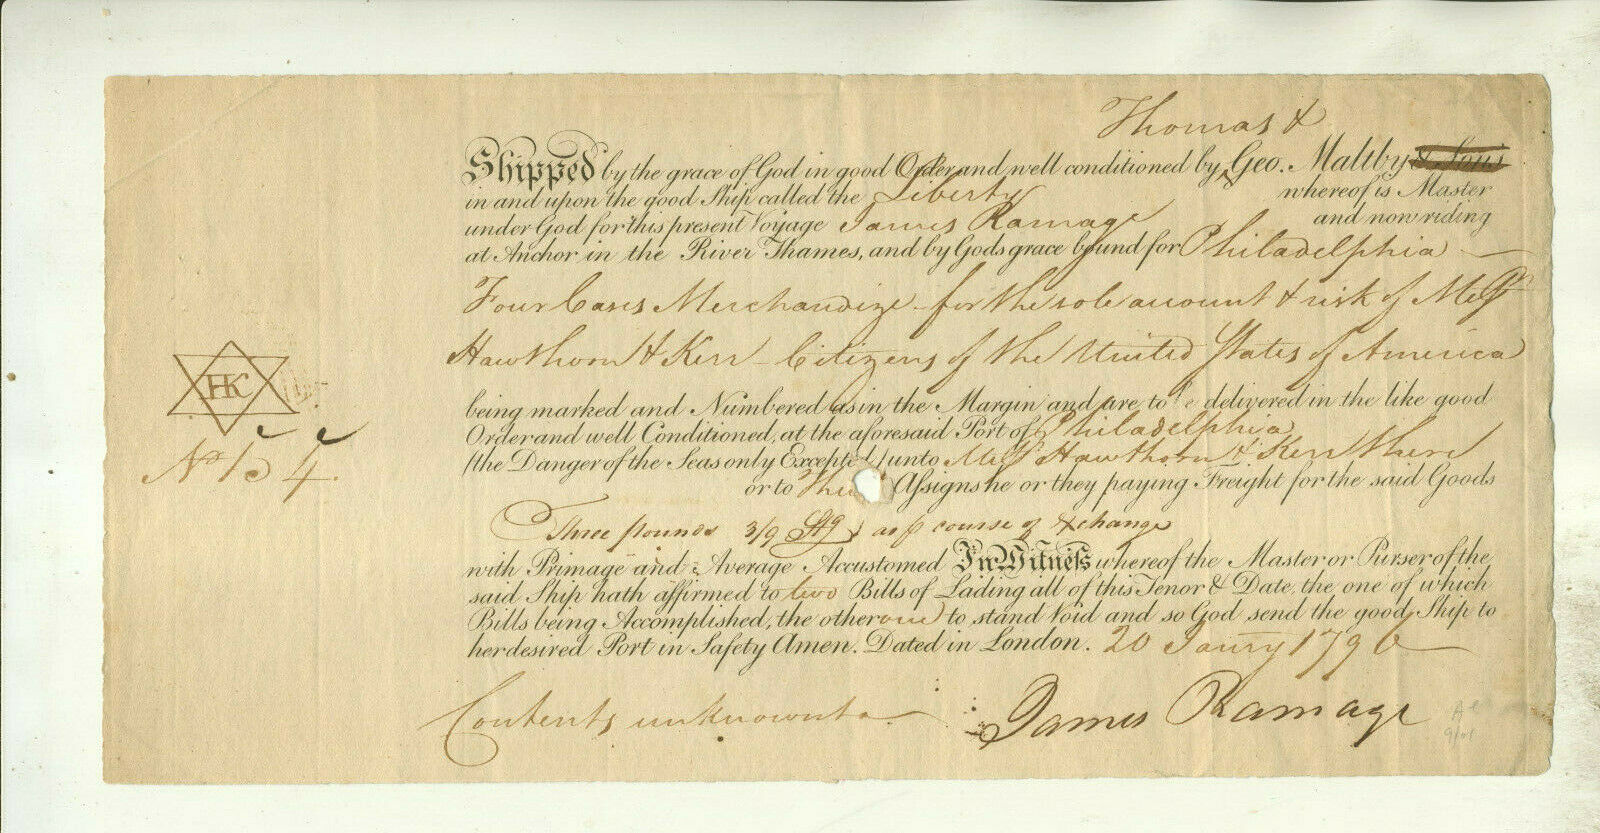 Thomas &
Shipped by the grace of God in good Order and well conditioned by Geo. Maltby & Sons
in and upon the good Ship called the Liberty whereof is Master
under God for this present Voyage James Ramage and now riding
at Anchor in the River Thames, and by Gods grace bound for Philadelphia
Four Cases Merchandize for the sole account & risk of Mess
Hawthorn & Kerr Citizens of the United States of America
being marked and Numbered as in the Margin and are to be delivered in the like good
Order and well Conditioned, at the aforesaid Port of Philadelphia
(the Danger of the Seas only Excepted) unto Mess Hawthorn & Kerr there
or to Assigns he or they paying Freight for the said Goods
Three pounds 3/9 Stg as p course of Exchange
with Primage and Average Accustomed In Witness whereof the Master or Purser of the
said Ship hath affirmed to two Bills of Lading all of this Tenor & Date, the one of which
Bills being Accomplished, the other one to stand Void and so God send the good Ship to
her desired Port in Safety Amen. Dated in London. 20 Janry 1796
Contents unknown to
James Ramage
HK
No 1 5 4.